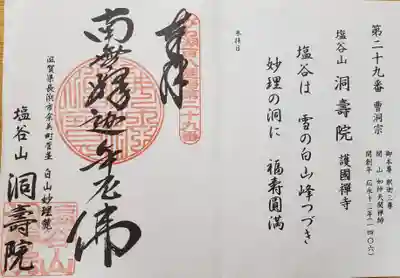 第二十九番 曹洞宗
塩谷山 洞壽院 護國禪寺
御本尊 釈迦三尊
開山 如仲天誾禅師
開創年 応永十三年(一四〇六)
塩谷は 雪の白山峰つづき
妙理の洞に 福寿圓満
参拝日
奉拝
南無釋迦牟尼佛
滋賀県長浜市余呉町菅並 白山妙理
塩谷山 洞壽院